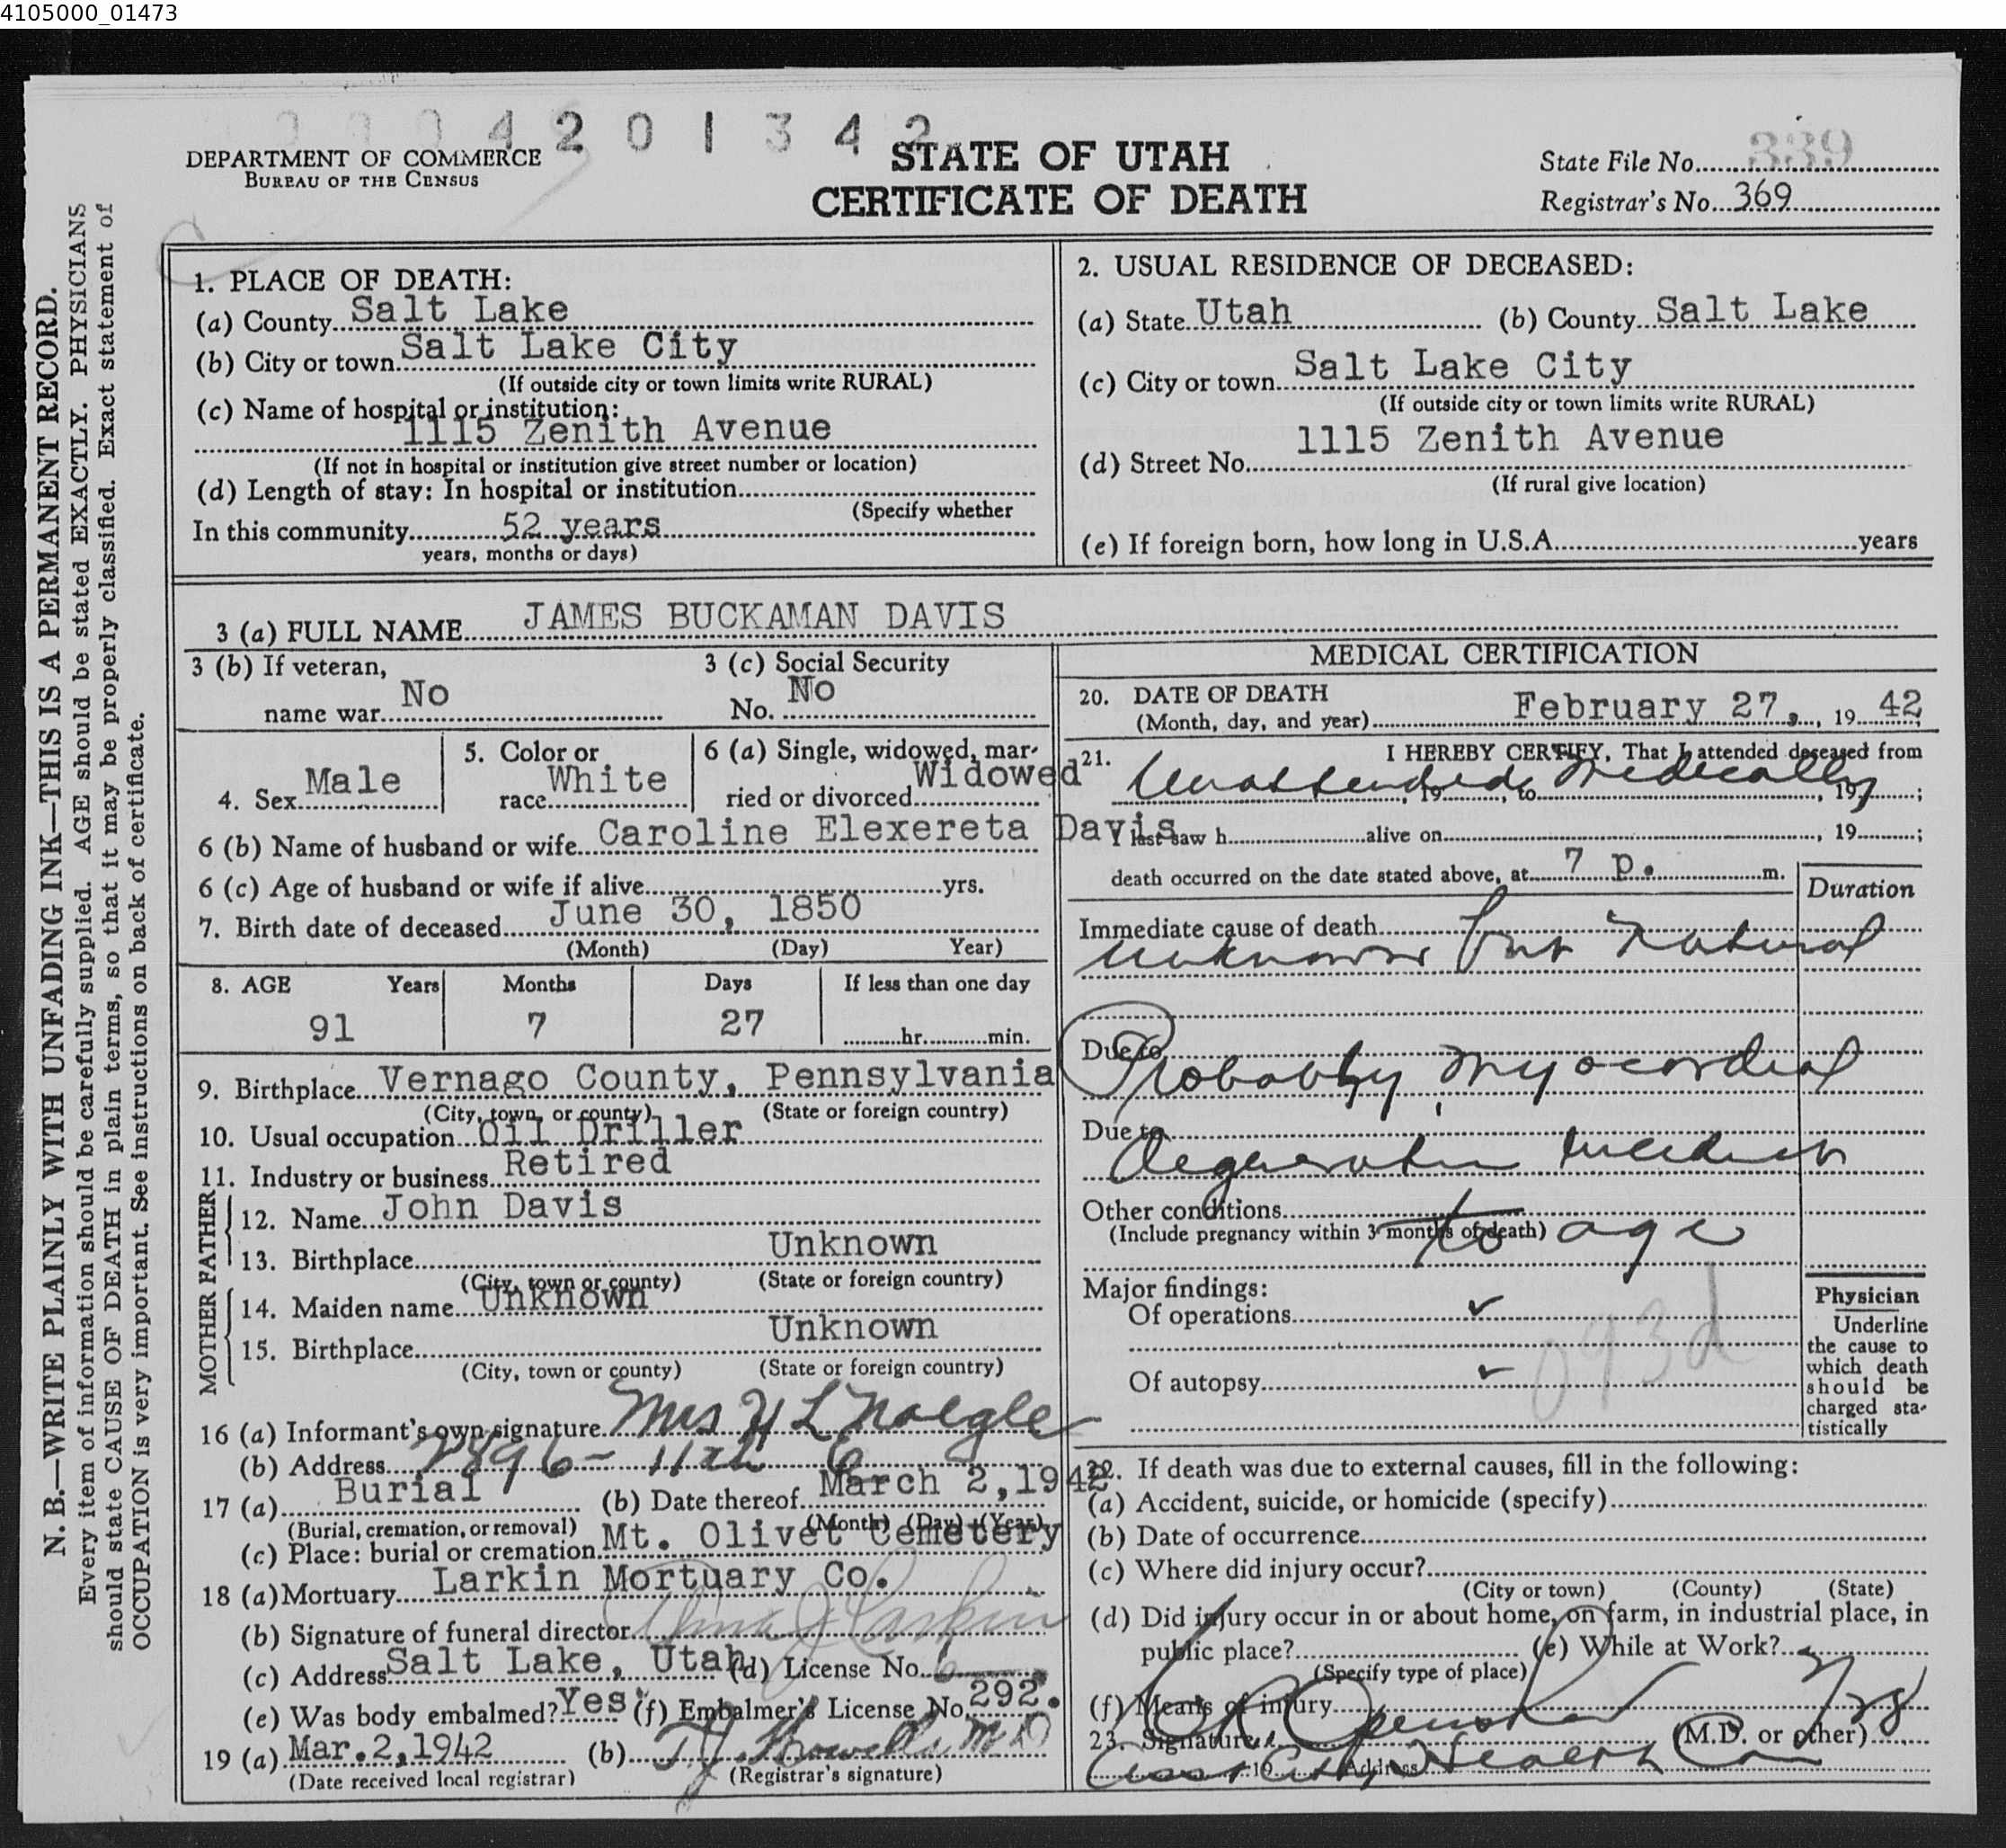 4105000_01473
4 2 0 1 3 4 2
DEPARTMENT OF COMMERCE
BUREAU OF THE CENSUS
STATE OF UTAH
CERTIFICATE OF DEATH
State File No. 339
Registrar's No. 369
N. B.—WRITE PLAINLY WITH UNFADING INK—THIS IS A PERMANENT RECORD.
Every item of information should be carefully supplied. AGE should be stated EXACTLY. PHYSICIANS
should state CAUSE OF DEATH in plain terms, so that it may be properly classified. Exact statement of
OCCUPATION is very important. See instructions on back of certificate.
1. PLACE OF DEATH:
(a) County Salt Lake
(b) City or town Salt Lake City
(If outside city or town limits write RURAL)
(c) Name of hospital or institution:
1115 Zenith Avenue
(If not in hospital or institution give street number or location)
(d) Length of stay: In hospital or institution
(Specify whether
In this community 52 years
years, months or days)
2. USUAL RESIDENCE OF DECEASED:
(a) State Utah (b) County Salt Lake
(c) City or town Salt Lake City
(If outside city or town limits write RURAL)
(d) Street No. 1115 Zenith Avenue
(If rural give location)
(e) If foreign born, how long in U.S.A. years
3 (a) FULL NAME JAMES BUCKAMAN DAVIS
3 (b) If veteran, name war No
3 (c) Social Security No. No
4. Sex Male
5. Color or race White
6 (a) Single, widowed, mar-
ried or divorced Widowed
6 (b) Name of husband or wife Caroline Elexereta Davis
6 (c) Age of husband or wife if alive yrs.
7. Birth date of deceased June 30, 1850
(Month) (Day) Year)
8. AGE Years Months Days If less than one day
91 7 27 hr. min.
9. Birthplace Vernago County, Pennsylvania
(City, town, or county) (State or foreign country)
10. Usual occupation Oil Driller
11. Industry or business Retired
FATHER
12. Name John Davis
13. Birthplace Unknown
(City, town or county) (State or foreign country)
MOTHER
14. Maiden name Unknown
15. Birthplace Unknown
(City, town or county) (State or foreign country)
16 (a) Informant's own signature Mrs H L Naegle
(b) Address 2896- 11th E
17 (a) Burial (b) Date thereof March 2,1942
(Burial, cremation, or removal) (Month) (Day) (Year)
(c) Place: burial or cremation Mt. Olivet Cemetery
18 (a) Mortuary Larkin Mortuary Co.
(b) Signature of funeral director Larkin
(c) Address Salt Lake, Utah (d) License No. 6
(e) Was body embalmed? Yes (f) Embalmer's License No. 292.
19 (a) Mar.2,1942 (b) T J Howells MD
(Date received local registrar) (Registrar's signature)
MEDICAL CERTIFICATION
20. DATE OF DEATH
(Month, day, and year) February 27, 19 42
21. I HEREBY CERTIFY, That I attended deceased from
Unattended Medically 19 to 19 ;
I last saw h alive on , 19 ;
death occurred on the date stated above, at 7 p. m.
Duration
Immediate cause of death
Unknown but Natural
Due to
Probably Myocardial
Due to
degeneration incident
Other conditions
(Include pregnancy within 3 months of death)
to age
Major findings:
Of operations ✓
Of autopsy ✓
093d
Physician
Underline
the cause to
which death
should be
charged sta-
tistically
22. If death was due to external causes, fill in the following:
(a) Accident, suicide, or homicide (specify)
(b) Date of occurrence
(c) Where did injury occur?
(City or town) (County) (State)
(d) Did injury occur in or about home, on farm, in industrial place, in
public place? (e) While at Work?
(Specify type of place)
(f) Means of injury
23. Signature (M.D. or other)
19 Address
Asst City Health Com